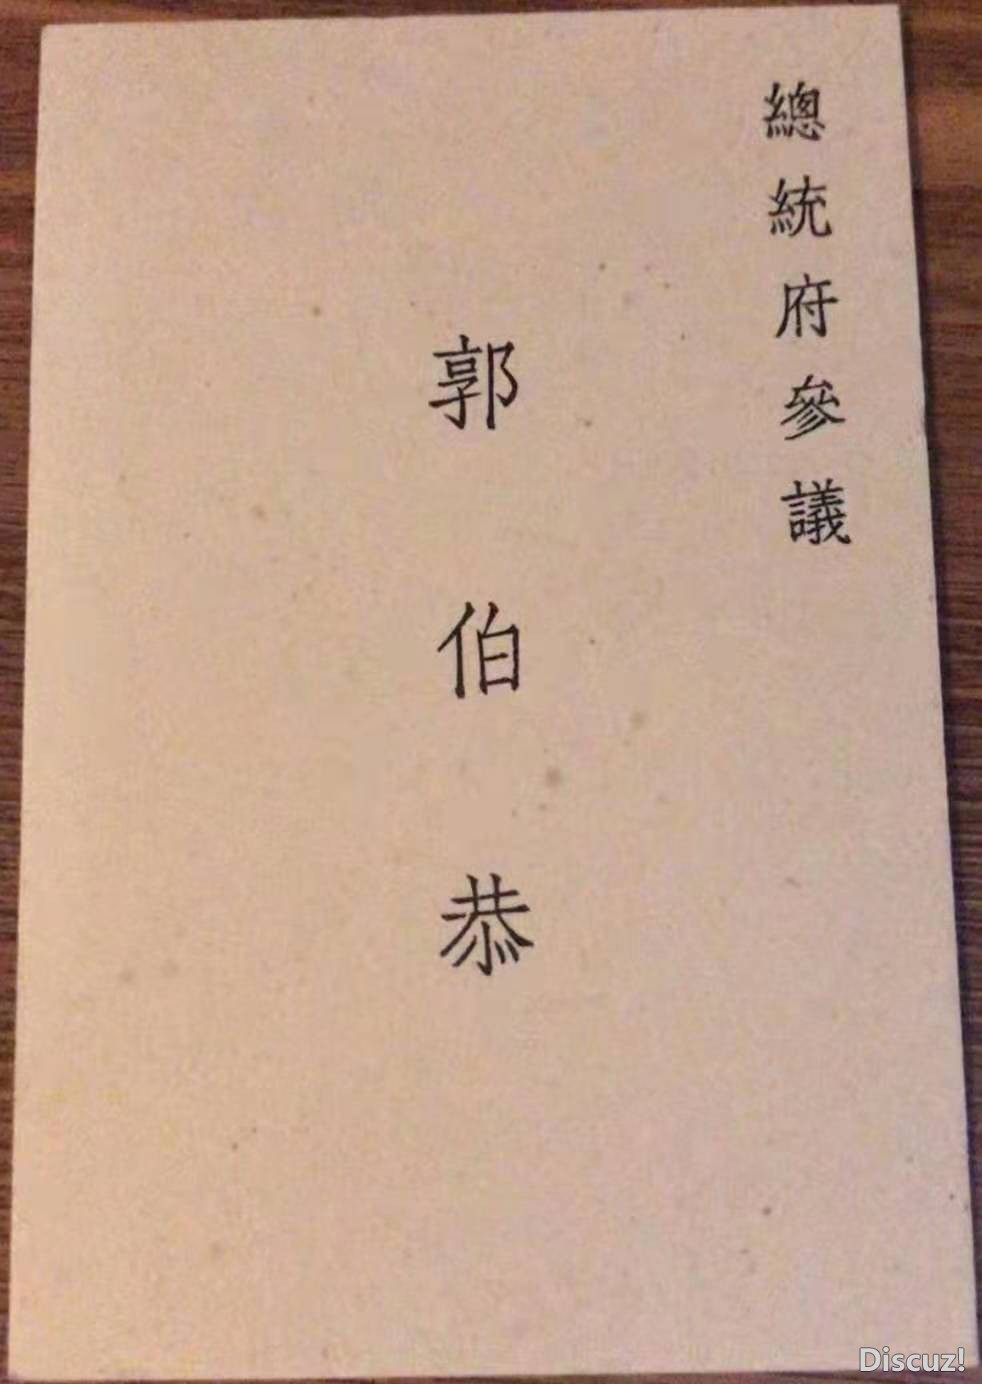 總統府參議
郭伯恭
Discuz!